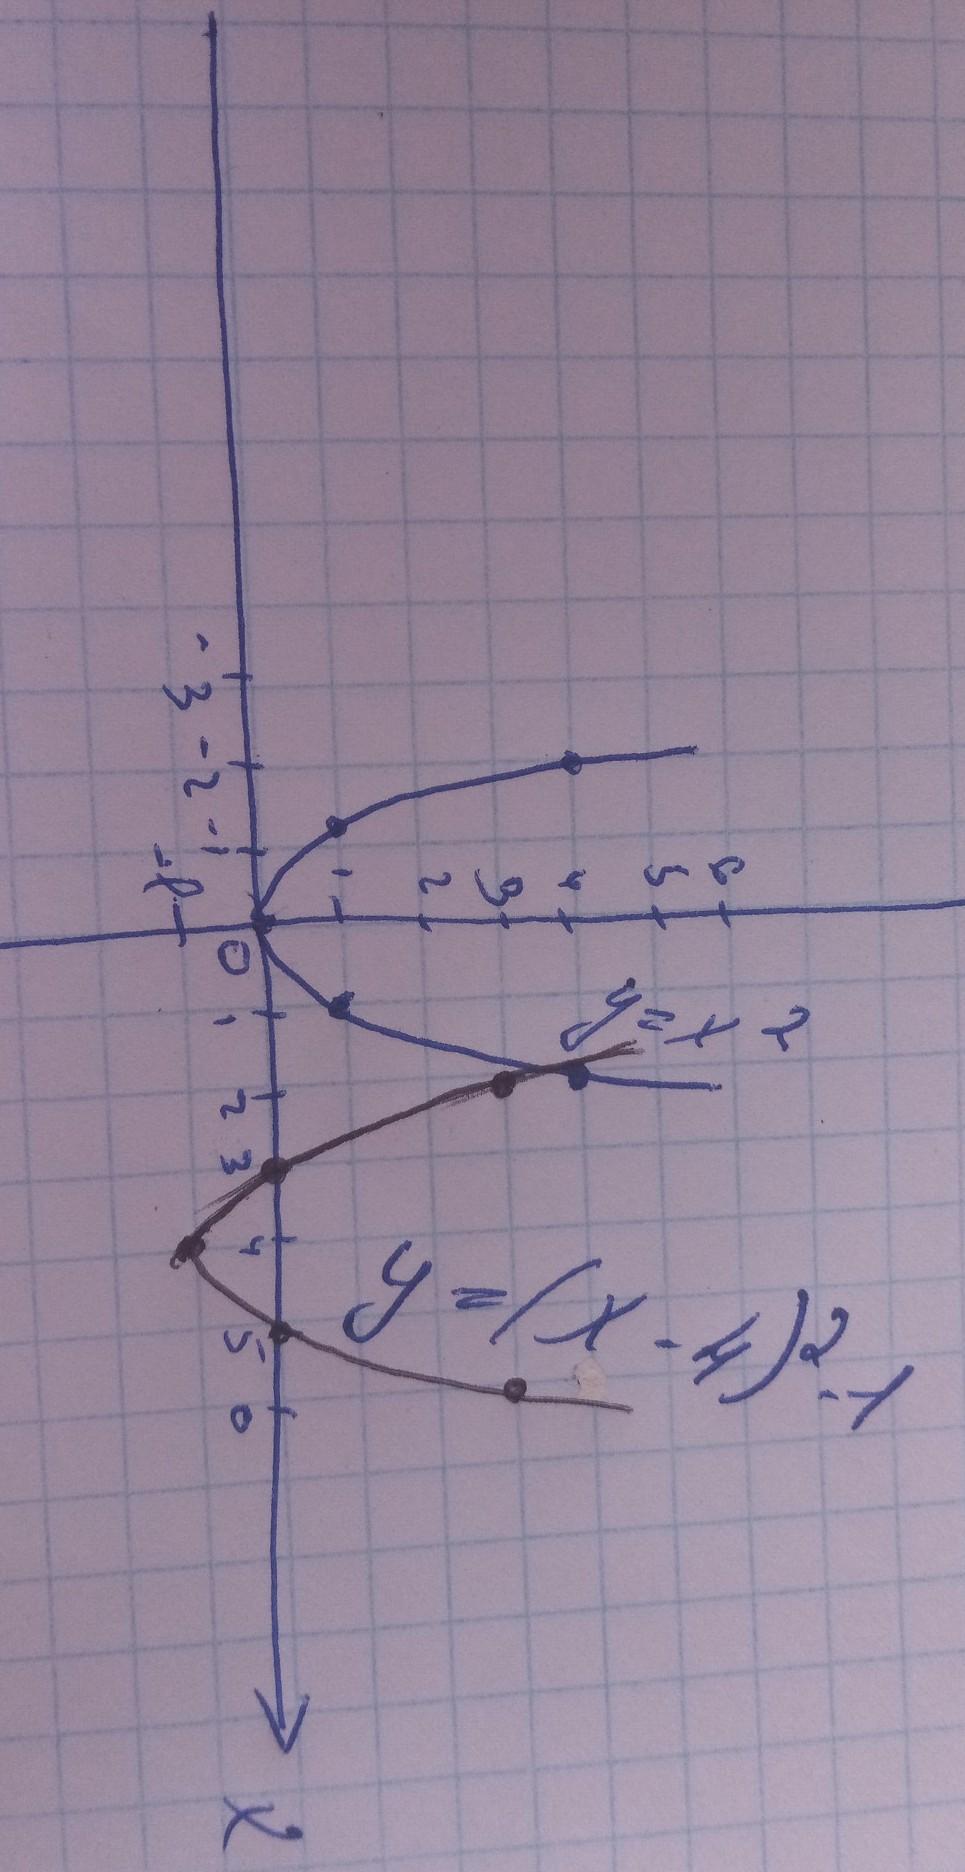 6
5
4
3
2
1
y=x2
y=(x-4)2-1
-3 -2 -1 0 1 2 3 4 5 6 x
-1